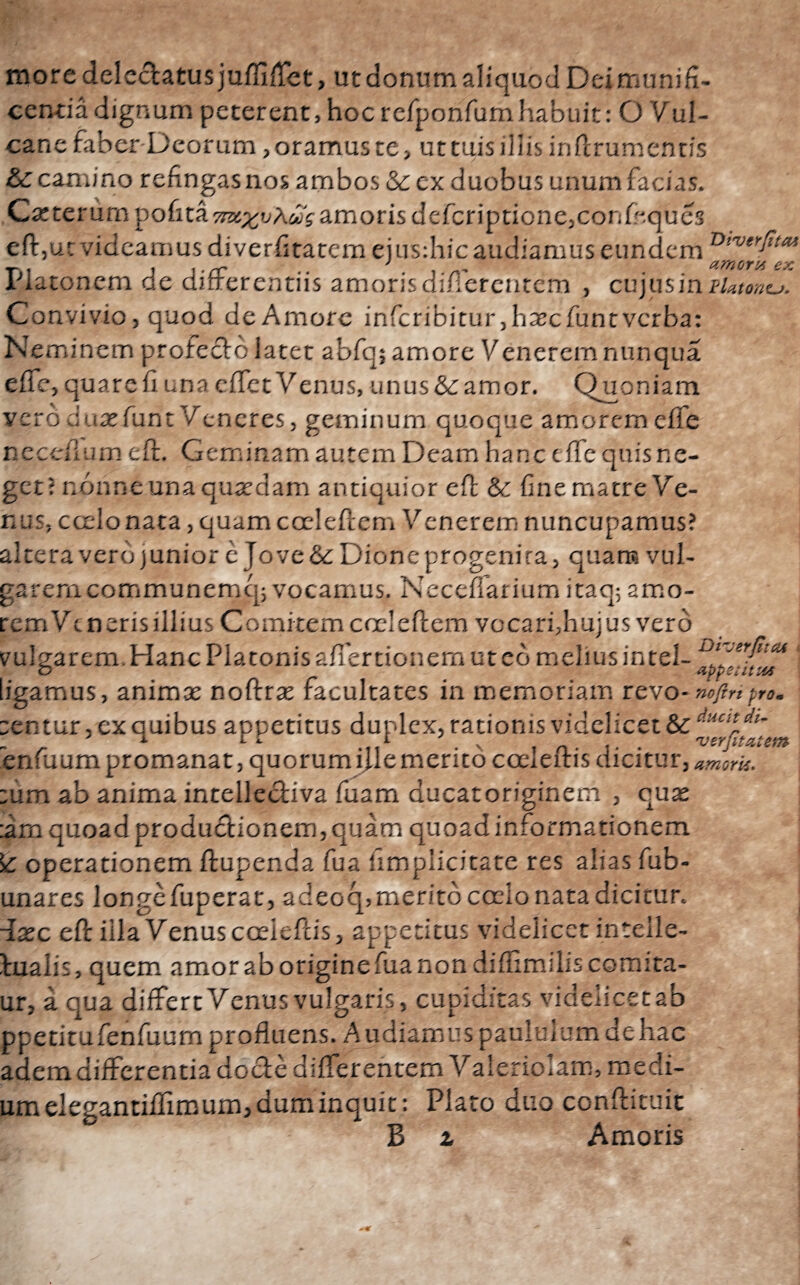 more delectatus juſſiſſet, ut donum aliquod Dei munifi-
centiâ dignum peterent, hoc reſponſum habuit: O Vul-
cane faber Deorum, oramus te, ut tuis illis inſtrumentis
& camino refingas nos ambos & ex duobus unum facias.
Cæterùm poſitâ παχυλῶς amoris deſcriptione, conſequẽs
eſt, ut videamus diverſitatem ejus: hic audiamus eundem
Diverſitas
amoris ex
Platone.
Platonem de differentiis amoris diſſerentem, cujus in
Convivio, quod de Amore inſcribitur, hæc ſunt verba:
Neminem profectò latet abſq; amore Venerem nunquã
eſſe, quare ſi una eſſet Venus, unus & amor. Quoniam
verò duæ ſunt Veneres, geminum quoque amorem eſſe
neceſſum eſt. Geminam autem Deam hanc eſſe quis ne-
get? nónne una quædam antiquior eſt & ſine matre Ve-
nus, cœlo nata, quam cœleſtem Venerem nuncupamus?
altera verò junior è Jove & Dione progenita, quam vul-
garem communemq; vocamus. Neceſſarium itaq; amo-
rem Veneris illius Comitem cœleſtem vocari, hujus verò
vulgarem. Hanc Platonis aſſertionem ut eò melius intel-
Diverſitas
appetitus
noſtri pro-
ducit di-
verſitatem
amoris.
ligamus, animæ noſtræ facultates in memoriam revo-
centur, ex quibus appetitus duplex, rationis videlicet &
ſenſuum promanat, quorum ille meritò cœleſtis dicitur,
cùm ab anima intellectiva ſuam ducat originem, quæ
tàm quoad productionem, quàm quoad informationem
& operationem ſtupenda ſua ſimplicitate res alias ſub-
lunares longè ſuperat, adeoq, meritò cœlo nata dicitur.
Hæc eſt illa Venus cœleſtis, appetitus videlicet intelle-
ctualis, quem amor ab origine ſua non diſſimilis comita-
tur, à qua differt Venus vulgaris, cupiditas videlicet ab
appetitu ſenſuum profluens. Audiamus paululum de hac
eadem differentia doctè diſſerentem Valeriolam, medi-
cum elegantiſſimum, dum inquit: Plato duo conſtituit
B 2 Amoris